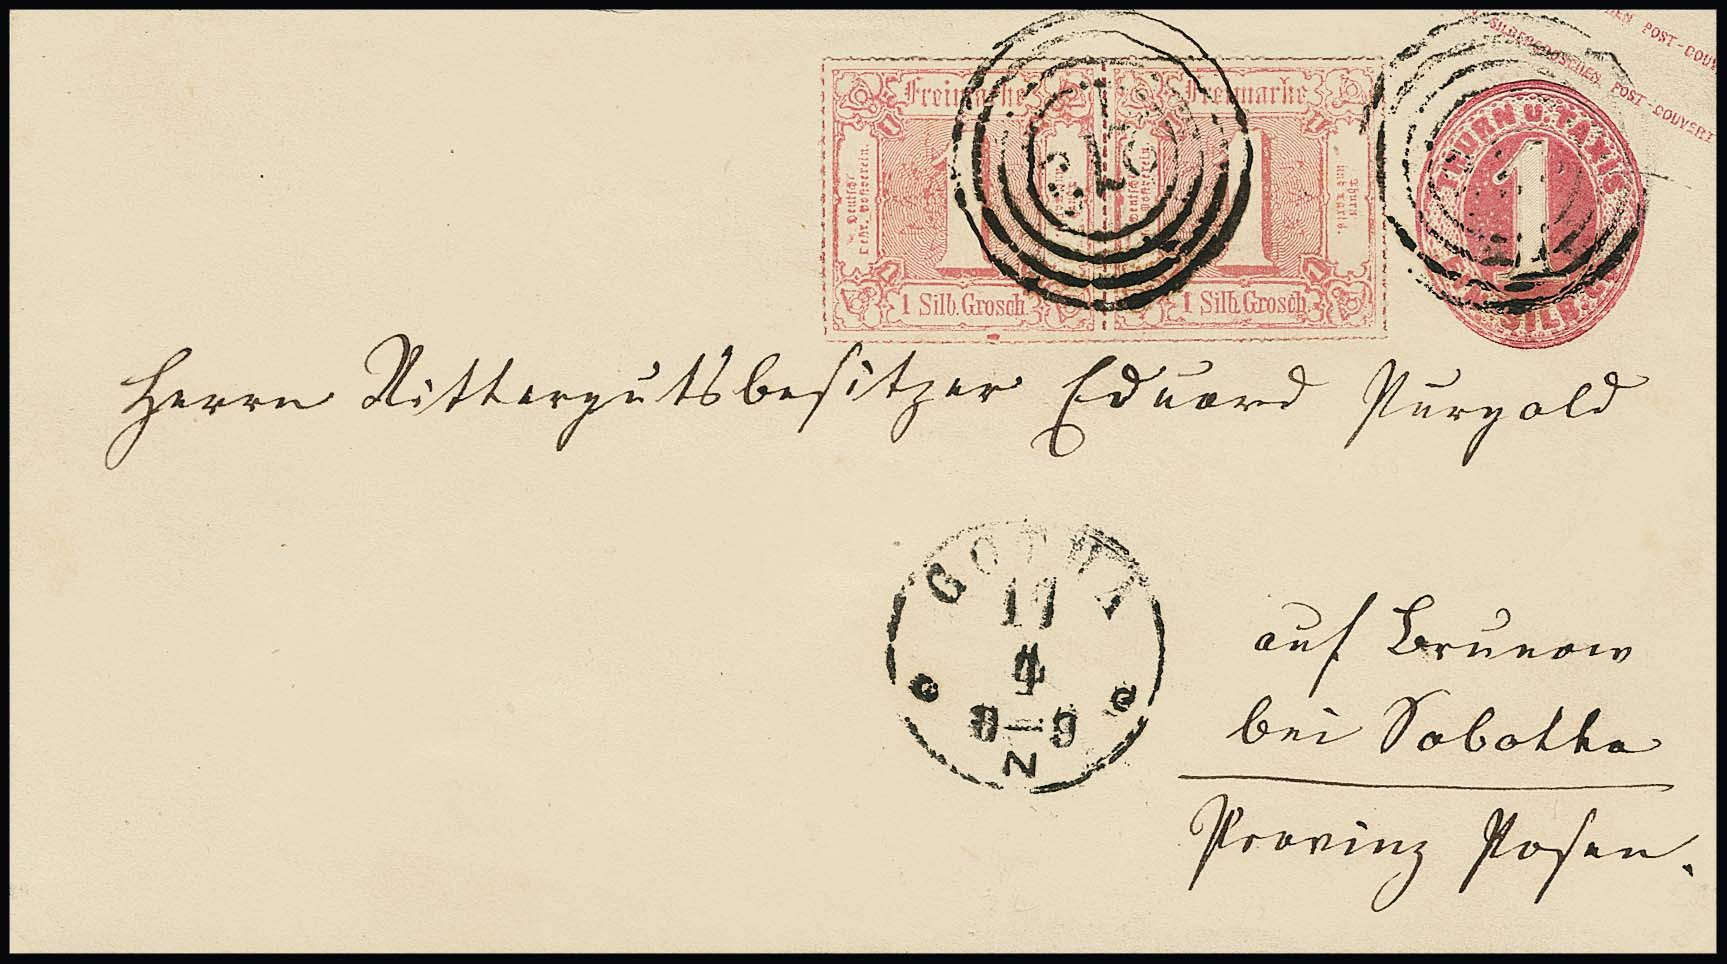 SILBERGROSCHEN POST-COUVERT
POST-COUV
Freimarke Freimarke
1 Silb. Grosch. 1 Silb. Grosch.
THURN U. TAXIS
1
Herrn Rittergutsbesitzer Eduard Purgold
GOTHA
17
4
8-9
N
auf Brunow
bei Sobotka
Provinz Posen.